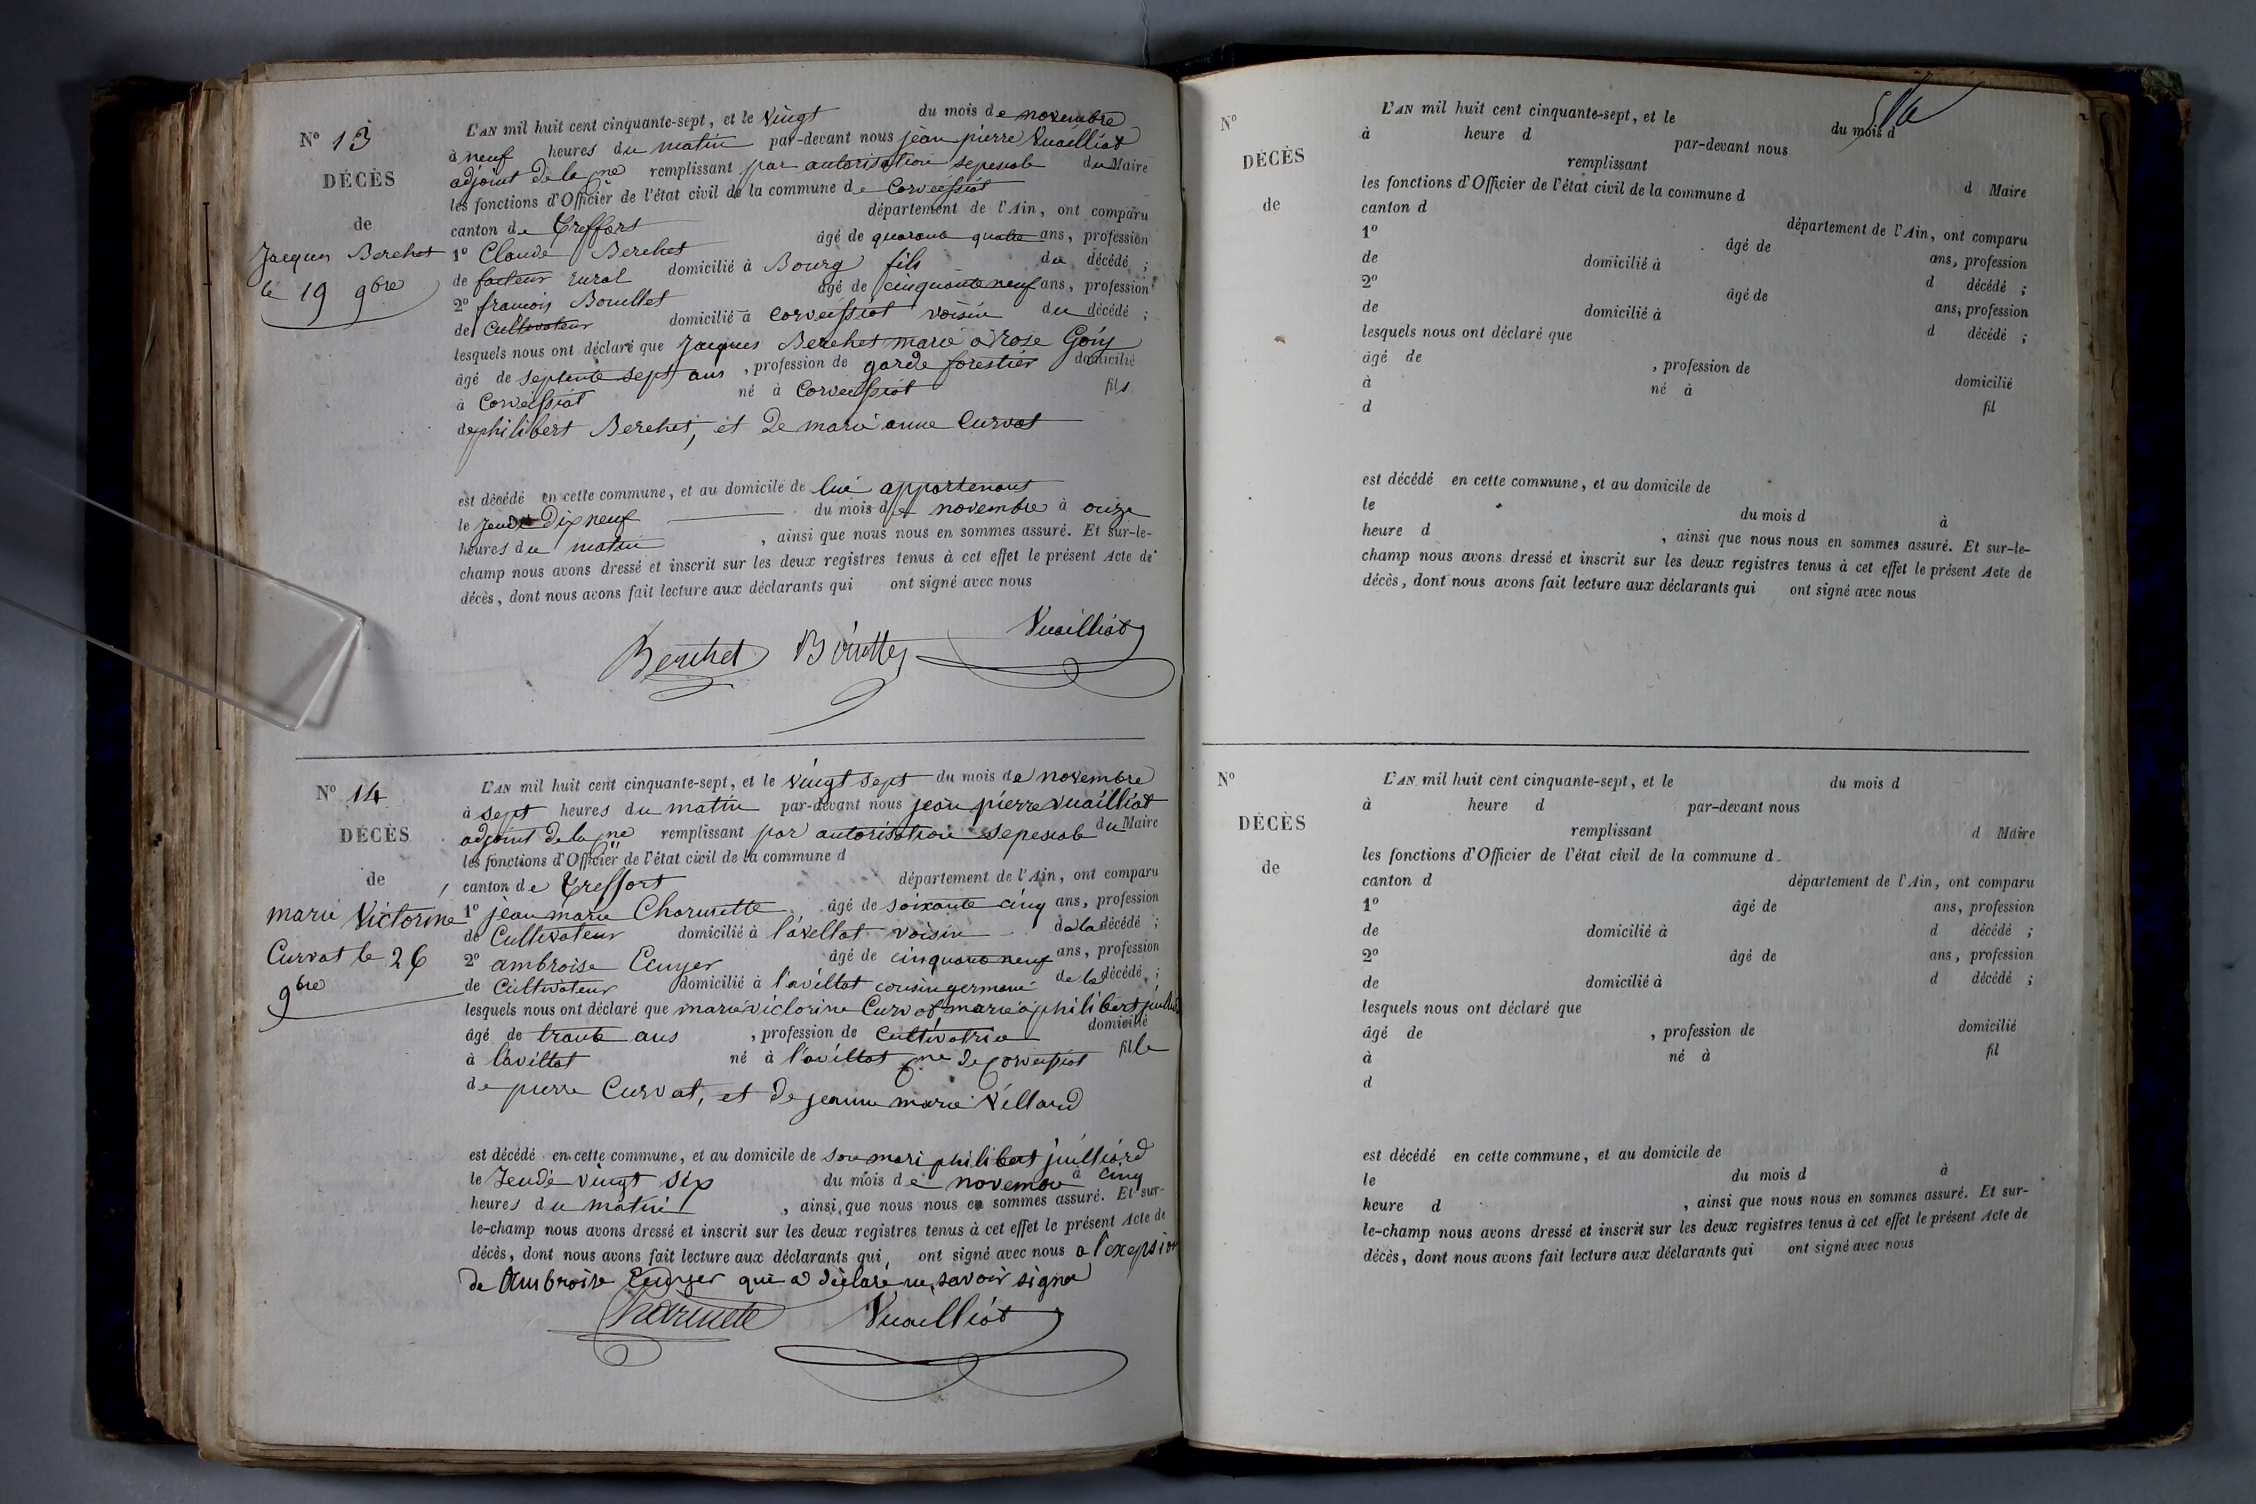 N° 13
DÉCÈS
de
Jacques Berchet
le 19 9bre
L'AN mil huit cent cinquante-sept, et le vingt du mois de novembre
à neuf heures du matin par-devant nous jean pierre Vuailliat
adjoint de la cne remplissant par autorisation du Maire
les fonctions d'Officier de l'état civil de la commune de Corveissiat
canton de Treffort département de l'Ain, ont comparu
1° Claude Berchet âgé de quarante quatre ans, profession
de facteur rural domicilié à Bourg fils du décédé ;
2° françois Bouillet âgé de cinquante neuf ans, profession
de Cultivateur domicilié à corveissiat voisin du décédé ;
lesquels nous ont déclaré que Jacques Berchet marié à Rose Góry
âgé de septente sept ans , profession de garde forestier domicilié
à Corveissiat né à Corveissiat fils
de philibert Berchet, et de marie anne Curvat
est décédé en cette commune, et au domicile de lui appartenant
le jeudi Dix neuf du mois de novembre à onze
heures du matin , ainsi que nous nous en sommes assuré. Et sur-le-
champ nous avons dressé et inscrit sur les deux registres tenus à cet effet le présent Acte de
décès, dont nous avons fait lecture aux déclarants qui ont signé avec nous
Berchet Vuailliat
N° 14
DÉCÈS
de
marie Victorine
Curvat le 26
9bre
L'AN mil huit cent cinquante-sept, et le vingt sept du mois de novembre
à sept heures du matin par-devant nous jean pierre vuailliat
adjoint de la cne remplissant par autorisation du Maire
les fonctions d'Officier de l'état civil de la commune d
canton de Treffort département de l'Ain, ont comparu
1° jean marie Charnette âgé de soixante cinq ans, profession
de Cultivateur domicilié à l'avellat voisin de la décédé ;
2° ambroise Ecuyer âgé de cinquante neuf ans, profession
de Cultivateur domicilié à l'avillat cousin germain de la décédé ;
lesquels nous ont déclaré que marie victorine Curvat marié à philibert
âgé de trante ans , profession de Cultivatrice domicilié
à l'avillat né à l'avillat cne de corveissiat fille
de pierre Curvat, et de jeanne marie Villard
est décédé en cette commune, et au domicile de son mari philibert juilliard
le Jeudi vingt six du mois de novembre à cinq
heures du matin , ainsi que nous nous en sommes assuré. Et sur-
le-champ nous avons dressé et inscrit sur les deux registres tenus à cet effet le présent Acte de
décès, dont nous avons fait lecture aux déclarants qui, ont signé avec nous a l'exepsion
de Ambroise Ecuyer qui a déclaré ne savoir signer
Charnette Vuailliat
N°
DÉCÈS
de
L'AN mil huit cent cinquante-sept, et le du mois d
à heure d par-devant nous
remplissant d Maire
les fonctions d'Officier de l'état civil de la commune d
canton d département de l'Ain, ont comparu
1° âgé de ans, profession
de domicilié à d décédé ;
2° âgé de ans, profession
de domicilié à d décédé ;
lesquels nous ont déclaré que
âgé de , profession de domicilié
à né à fil
d
est décédé en cette commune, et au domicile de
le du mois d à
heure d , ainsi que nous nous en sommes assuré. Et sur-le-
champ nous avons dressé et inscrit sur les deux registres tenus à cet effet le présent Acte de
décès, dont nous avons fait lecture aux déclarants qui ont signé avec nous
N°
DÉCÈS
de
L'AN mil huit cent cinquante-sept, et le du mois d
à heure d par-devant nous
remplissant d Maire
les fonctions d'Officier de l'état civil de la commune d
canton d département de l'Ain, ont comparu
1° âgé de ans, profession
de domicilié à d décédé ;
2° âgé de ans, profession
de domicilié à d décédé ;
lesquels nous ont déclaré que
âgé de , profession de domicilié
à né à fil
d
est décédé en cette commune, et au domicile de
le du mois d à
heure d , ainsi que nous nous en sommes assuré. Et sur-
le-champ nous avons dressé et inscrit sur les deux registres tenus à cet effet le présent Acte de
décès, dont nous avons fait lecture aux déclarants qui ont signé avec nous